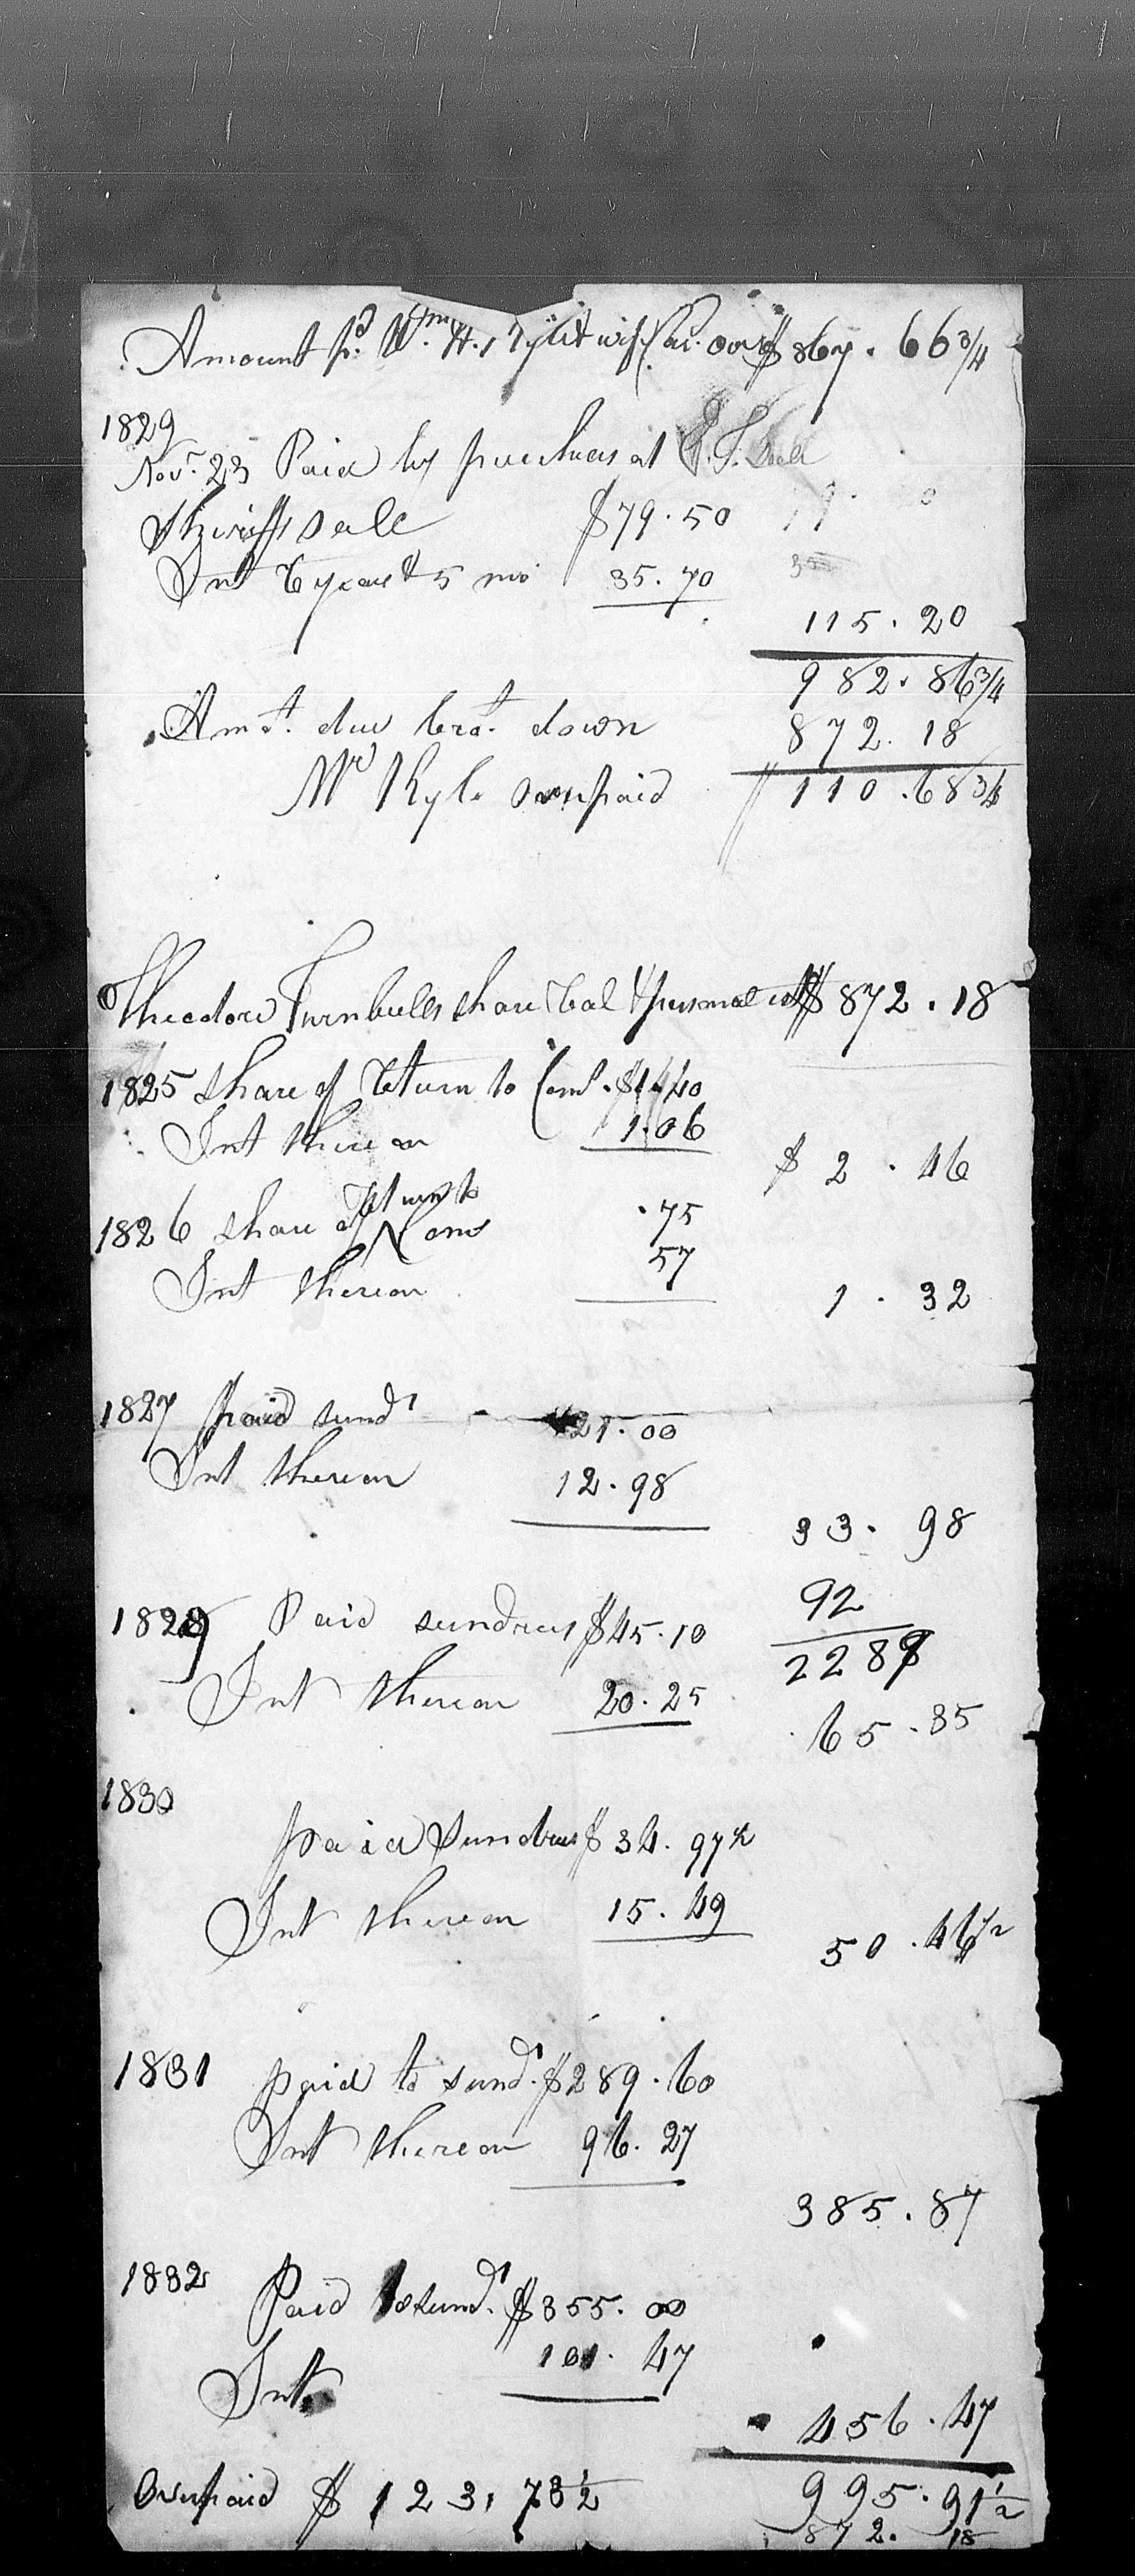 Amount pd. Wm. H. Kyle & wife $ 867. 66 3/4
1829
Novr. 23 Paid by purchases at
Sheriffs sale $79.50
Int 6 years & 5 mo 35.70
115.20
982.86 3/4
Amt. due brot. down 872.18
Mr Kyle overpaid $ 110.68 3/4
Theodore Turnbulls share bal & personal est $ 872.18
1825 share of return to Coms. $1.40
Int thereon 1.06
$ 2.46
1826 share of return to Coms .75
Int thereon 57
1.32
1827 paid sunds 21.00
Int thereon 12.98
33.98
92
228
1829 Paid sundries $45.10
Int thereon 20.25
65.35
1830
paid Sundries $ 34.97 1/2
Int thereon 15.49
50.46 1/2
1831 paid to sunds. $289.60
Int thereon 96.27
385.87
1832
Paid to sunds. $355.00
Int. 101.47
456.47
995.91 1/2
Overpaid $ 123.73 1/2
872. 18